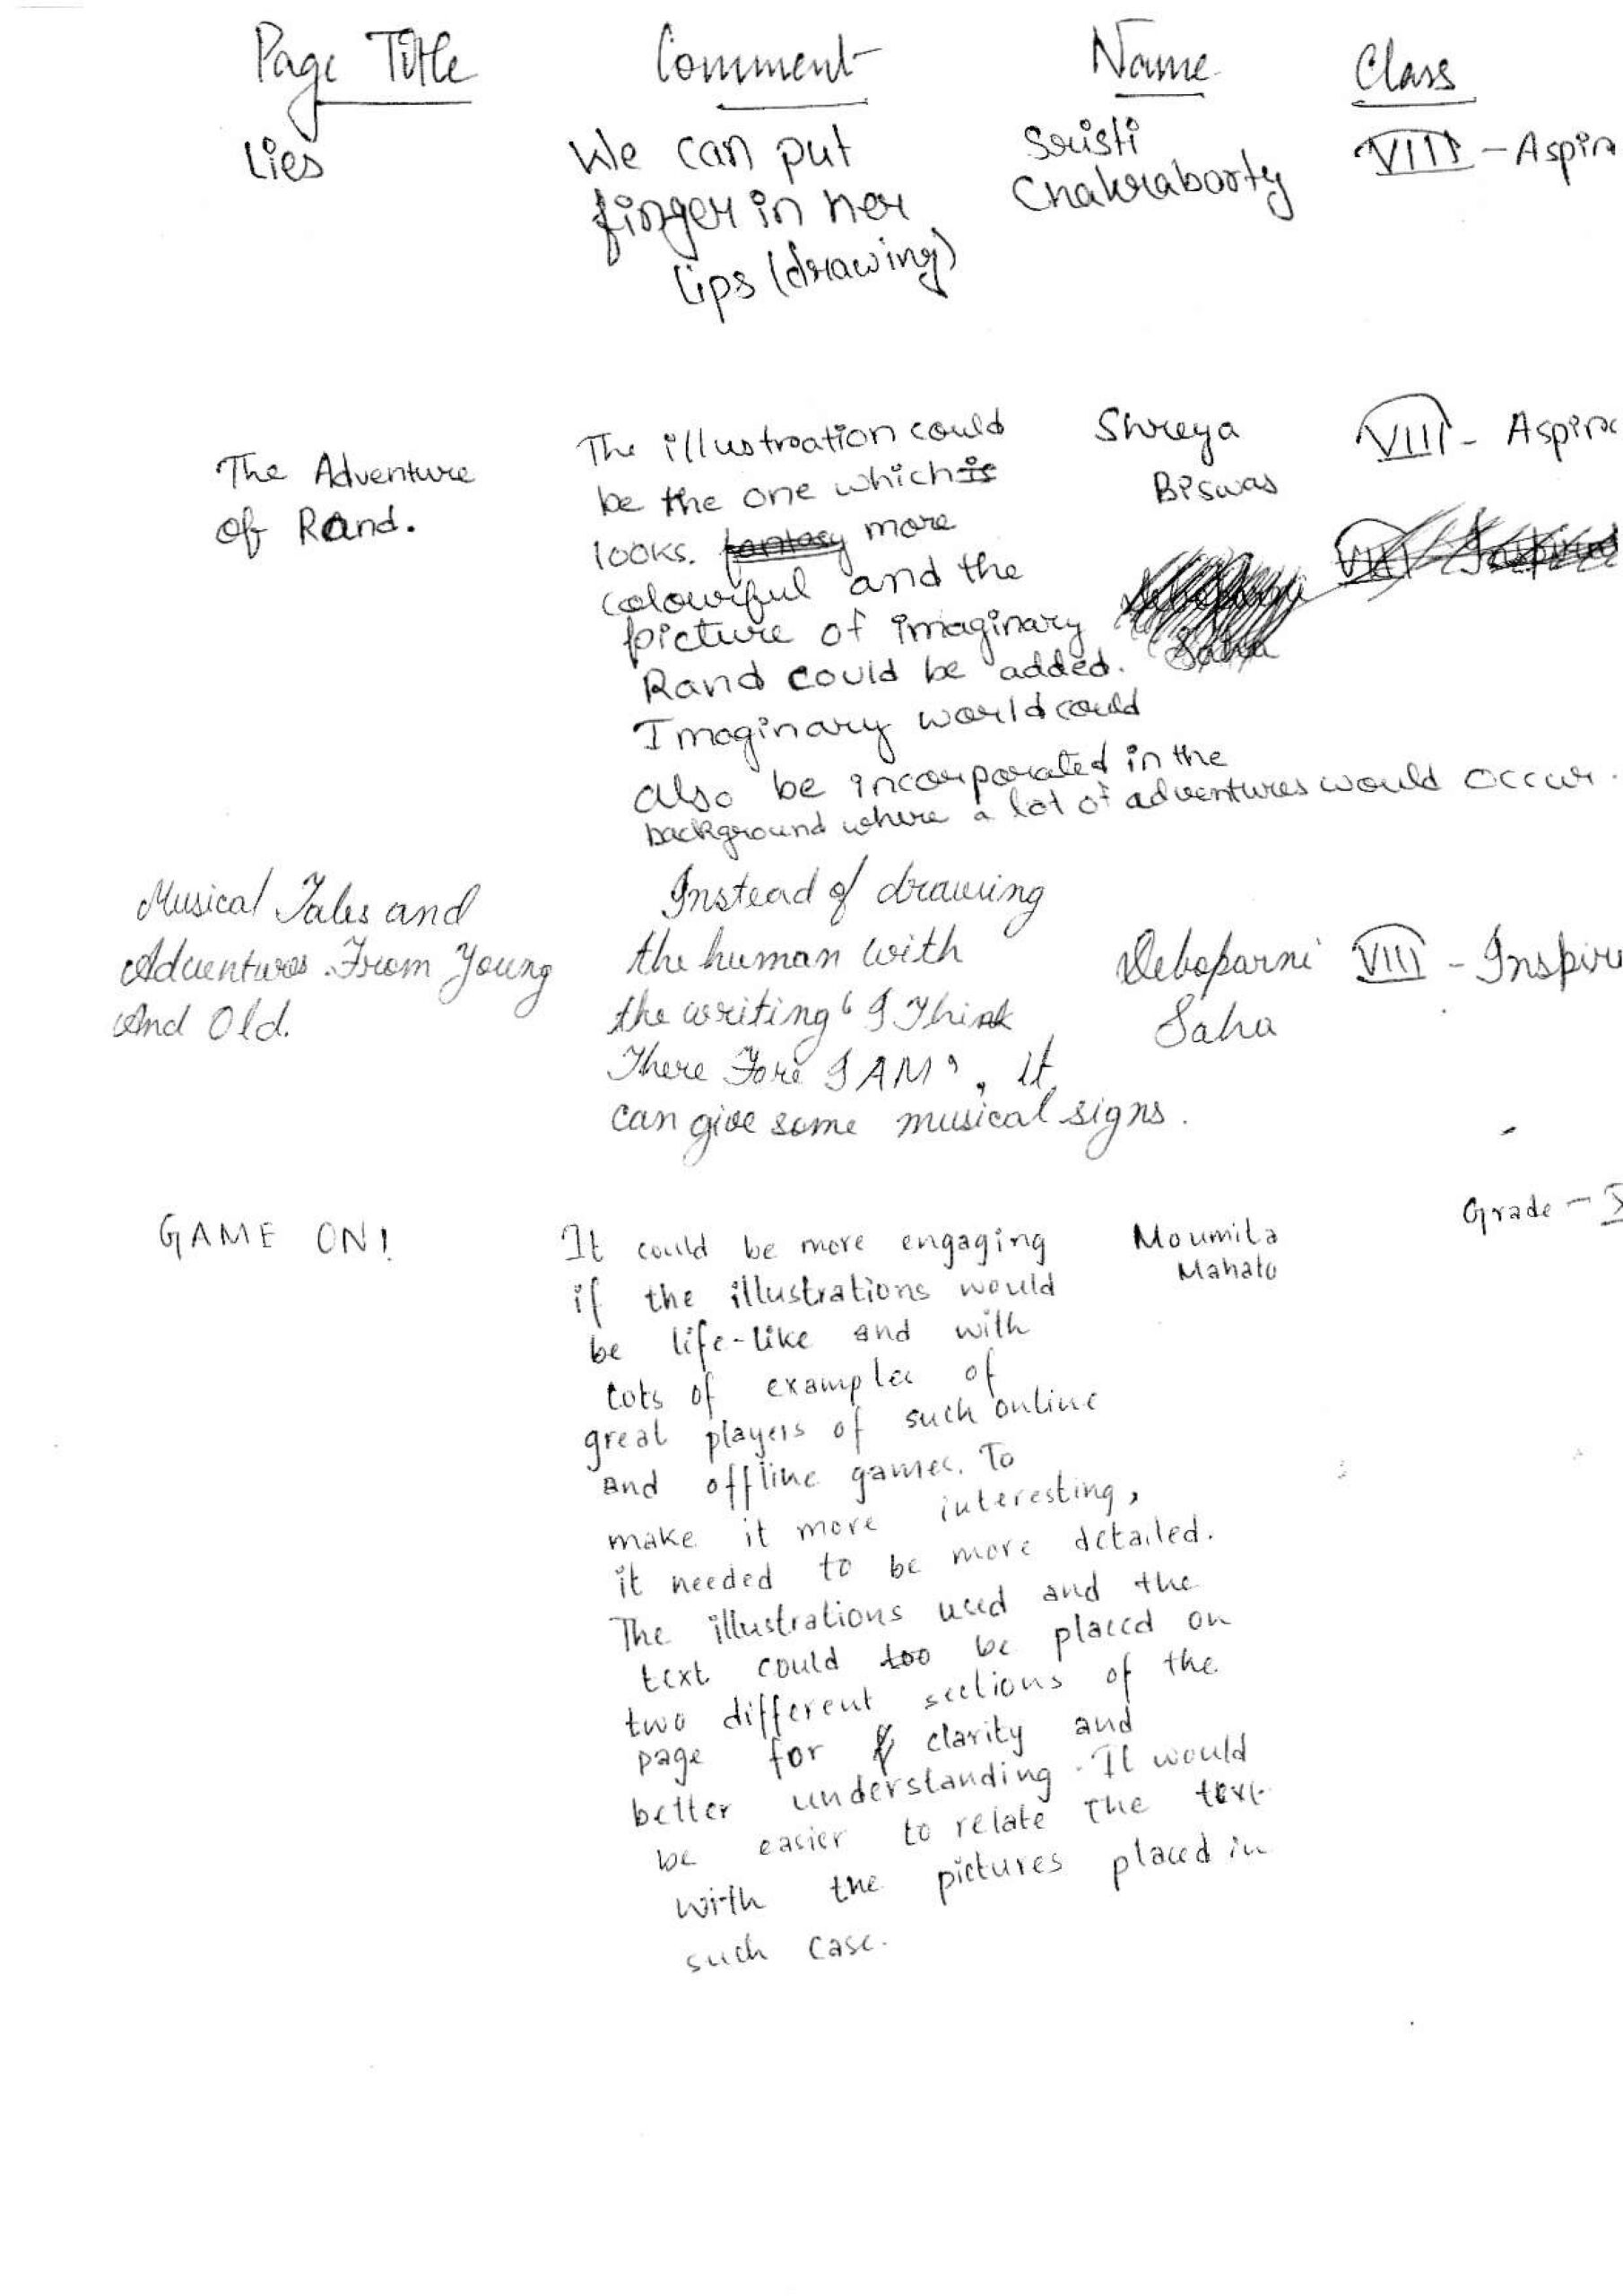 Page Title Comment Name Class
Lies We can put Sristi VIII - Aspir
finger in her Chakraborty
lips (drawing)
The illustration could Shreya VIII - Aspir
The Adventure be the one which is Biswas
of Rand. looks. fantasy more
colourful and the
picture of imaginary
Rand could be added. Saha
Imaginary world could
also be incorporated in the
background where a lot of adventures would occur.
Musical Tales and Instead of drawing
Adventures From Young the human with Deboparni VIII - Inspire
And Old. the writing 'I Think Saha
There Fore I AM', it
can give some musical signs.
GAME ON! It could be more engaging Moumita Grade -
if the illustrations would Mahato
be life-like and with
lots of examples of
great players of such online
and offline games. To
make it more interesting,
it needed to be more detailed.
The illustrations used and the
text could too be placed on
two different sections of the
page for clarity and
better understanding. It would
be easier to relate the text
with the pictures placed in
such case.